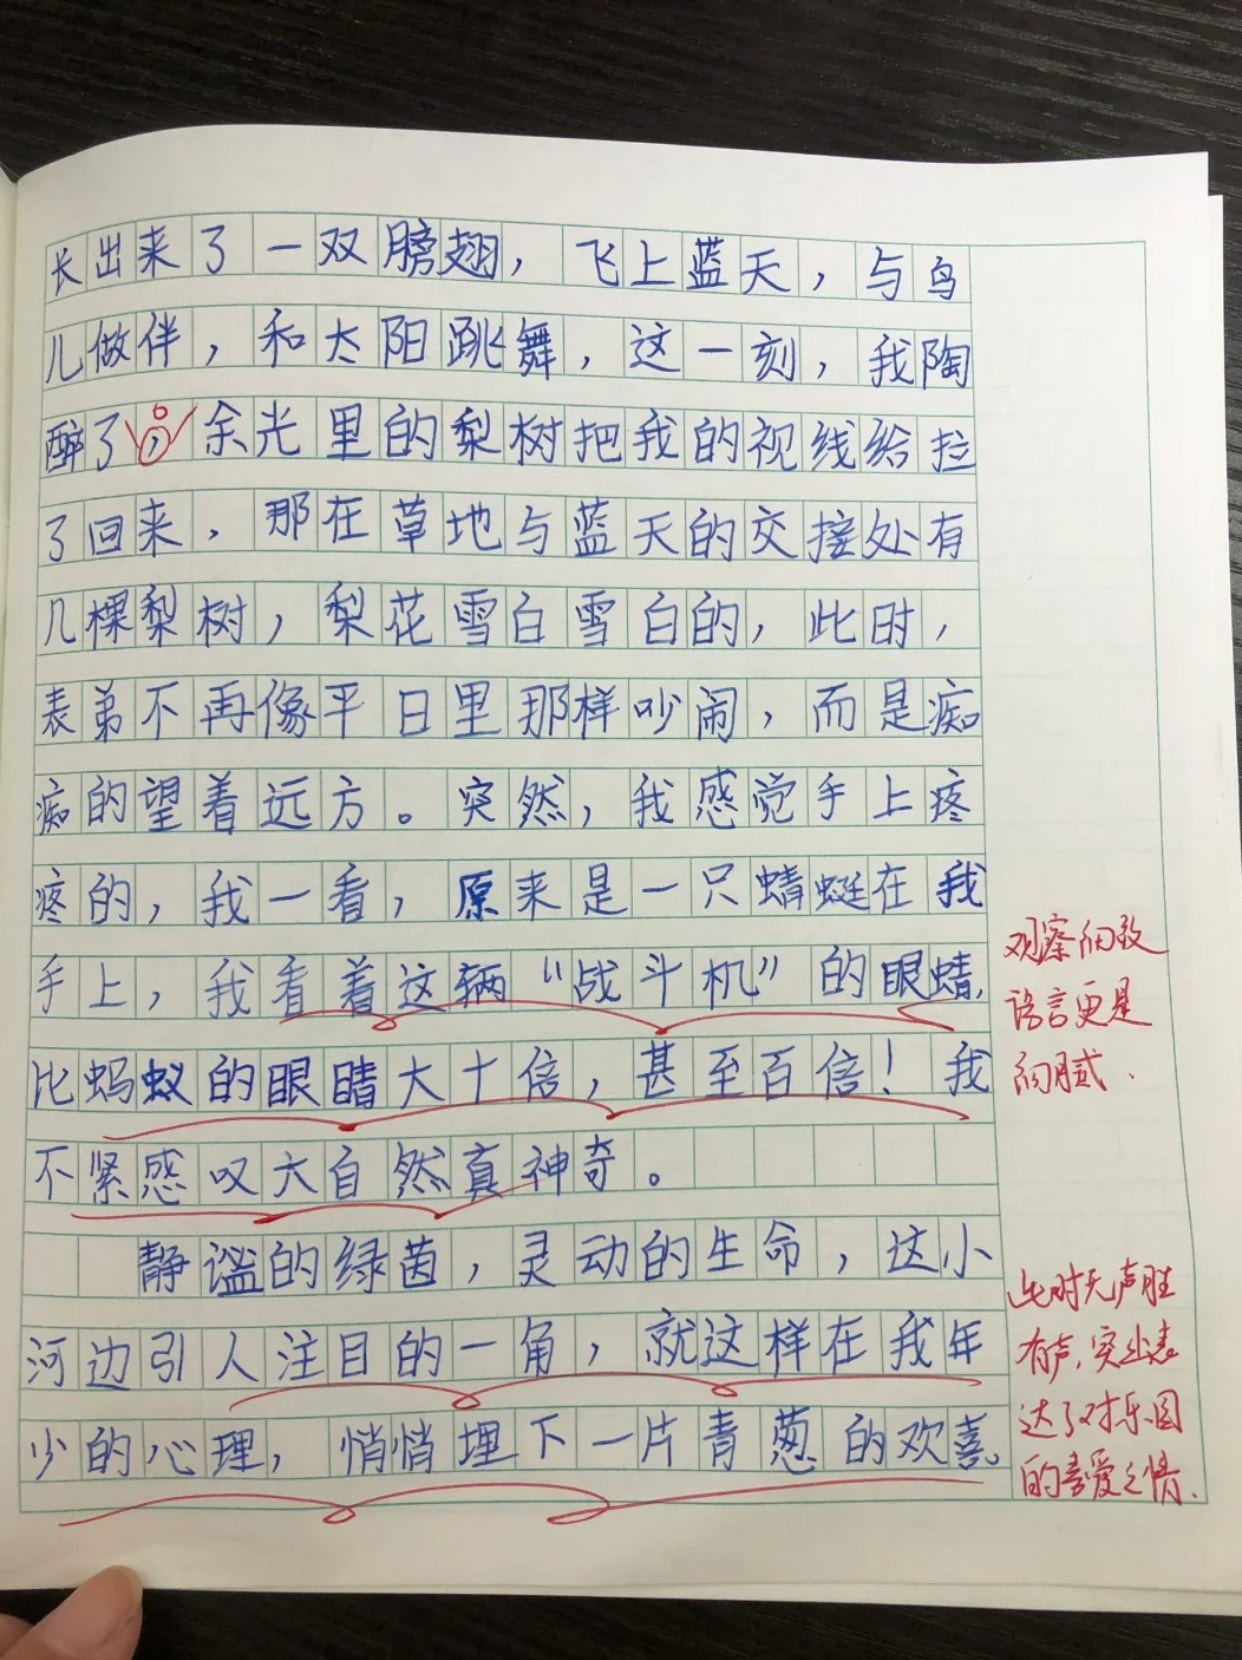 长出来了一双膀翅，飞上蓝天，与鸟
儿做伴，和太阳跳舞，这一刻，我陶
醉了。余光里的梨树把我的视线给拉
了回来，那在草地与蓝天的交接处有
几棵梨树，梨花雪白雪白的，此时，
表弟不再像平日里那样吵闹，而是痴
痴的望着远方。突然，我感觉手上疼
疼的，我一看，原来是一只蜻蜓在我
手上，我看着这辆“战斗机”的眼蜻，
比蚂蚁的眼睛大十倍，甚至百倍！我
不紧感叹大自然真神奇。
静谧的绿茵，灵动的生命，这小
河边引人注目的一角，就这样在我年
少的心理，悄悄埋下一片青葱的欢喜。
观察细致
语言更是
细腻.
此时无声胜
有声,突出表
达了对乐园
的喜爱之情.